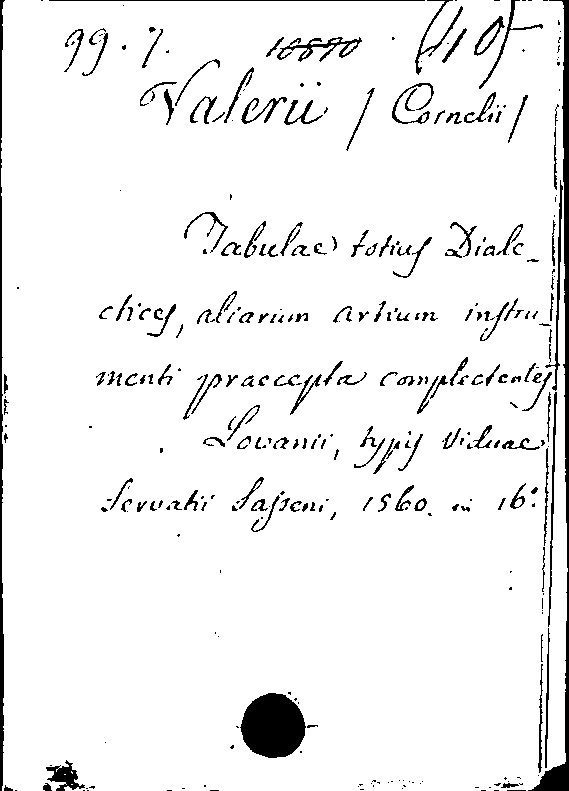 99. 7. 10870 (40).
Valerii / Cornelii /
Tabulae totius Diale_
ctices, aliarum artium instru_
menti praecepta complectentes
Lovanii, typis Viduae
Servatii Sasseni, 1560. in 16º.